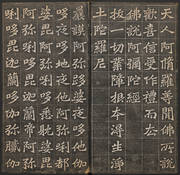 天人阿脩羅等聞佛所說
歡喜信受作禮而去
佛說阿彌陀經
拔一切業障根本得生淨
土陀羅尼
曩謨阿弥多婆夜哆他伽
哆夜哆地夜他阿弥唎都
婆毘阿弥唎哆悉耽婆毘
阿弥唎哆毘迦蘭帝阿弥
唎哆毘迦蘭哆伽弥膩伽